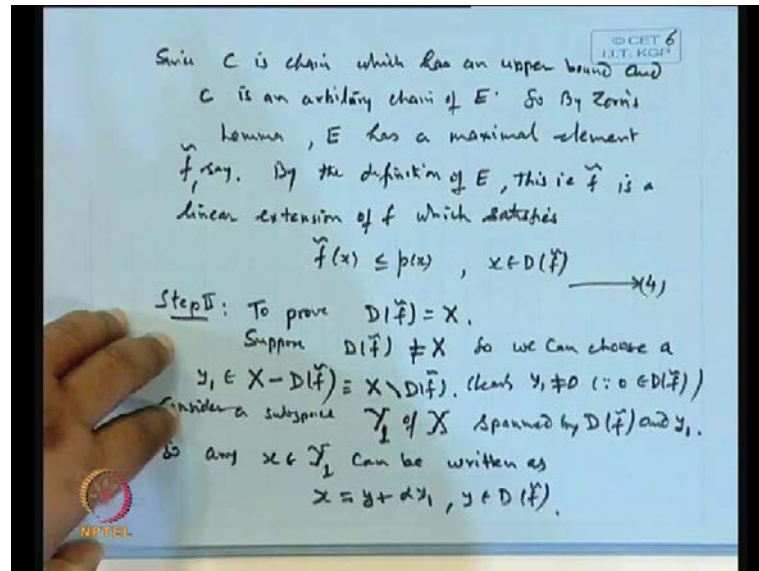 © CET
I.I.T. KGP
6
Since C is chain which has an upper bound and
C is an arbitrary chain of E. So By Zorn's
Lemma, E has a maximal element
f̃, say. By the definition of E, this ie f̃ is a
linear extension of f which satisfies
f̃(x) ≤ p(x) , x ∈ D(f̃) → (4)
Step II: To prove D(f̃) = X.
Suppose D(f̃) ≠ X so we can choose a
y₁ ∈ X - D(f̃) = X \ D(f̃). Clearly y₁ ≠ 0 (∵ 0 ∈ D(f̃))
Consider a subspace Y₁ of X spanned by D(f̃) and y₁.
So any x ∈ Y₁ can be written as
x = y + αy₁ , y ∈ D(f̃).
NPTEL